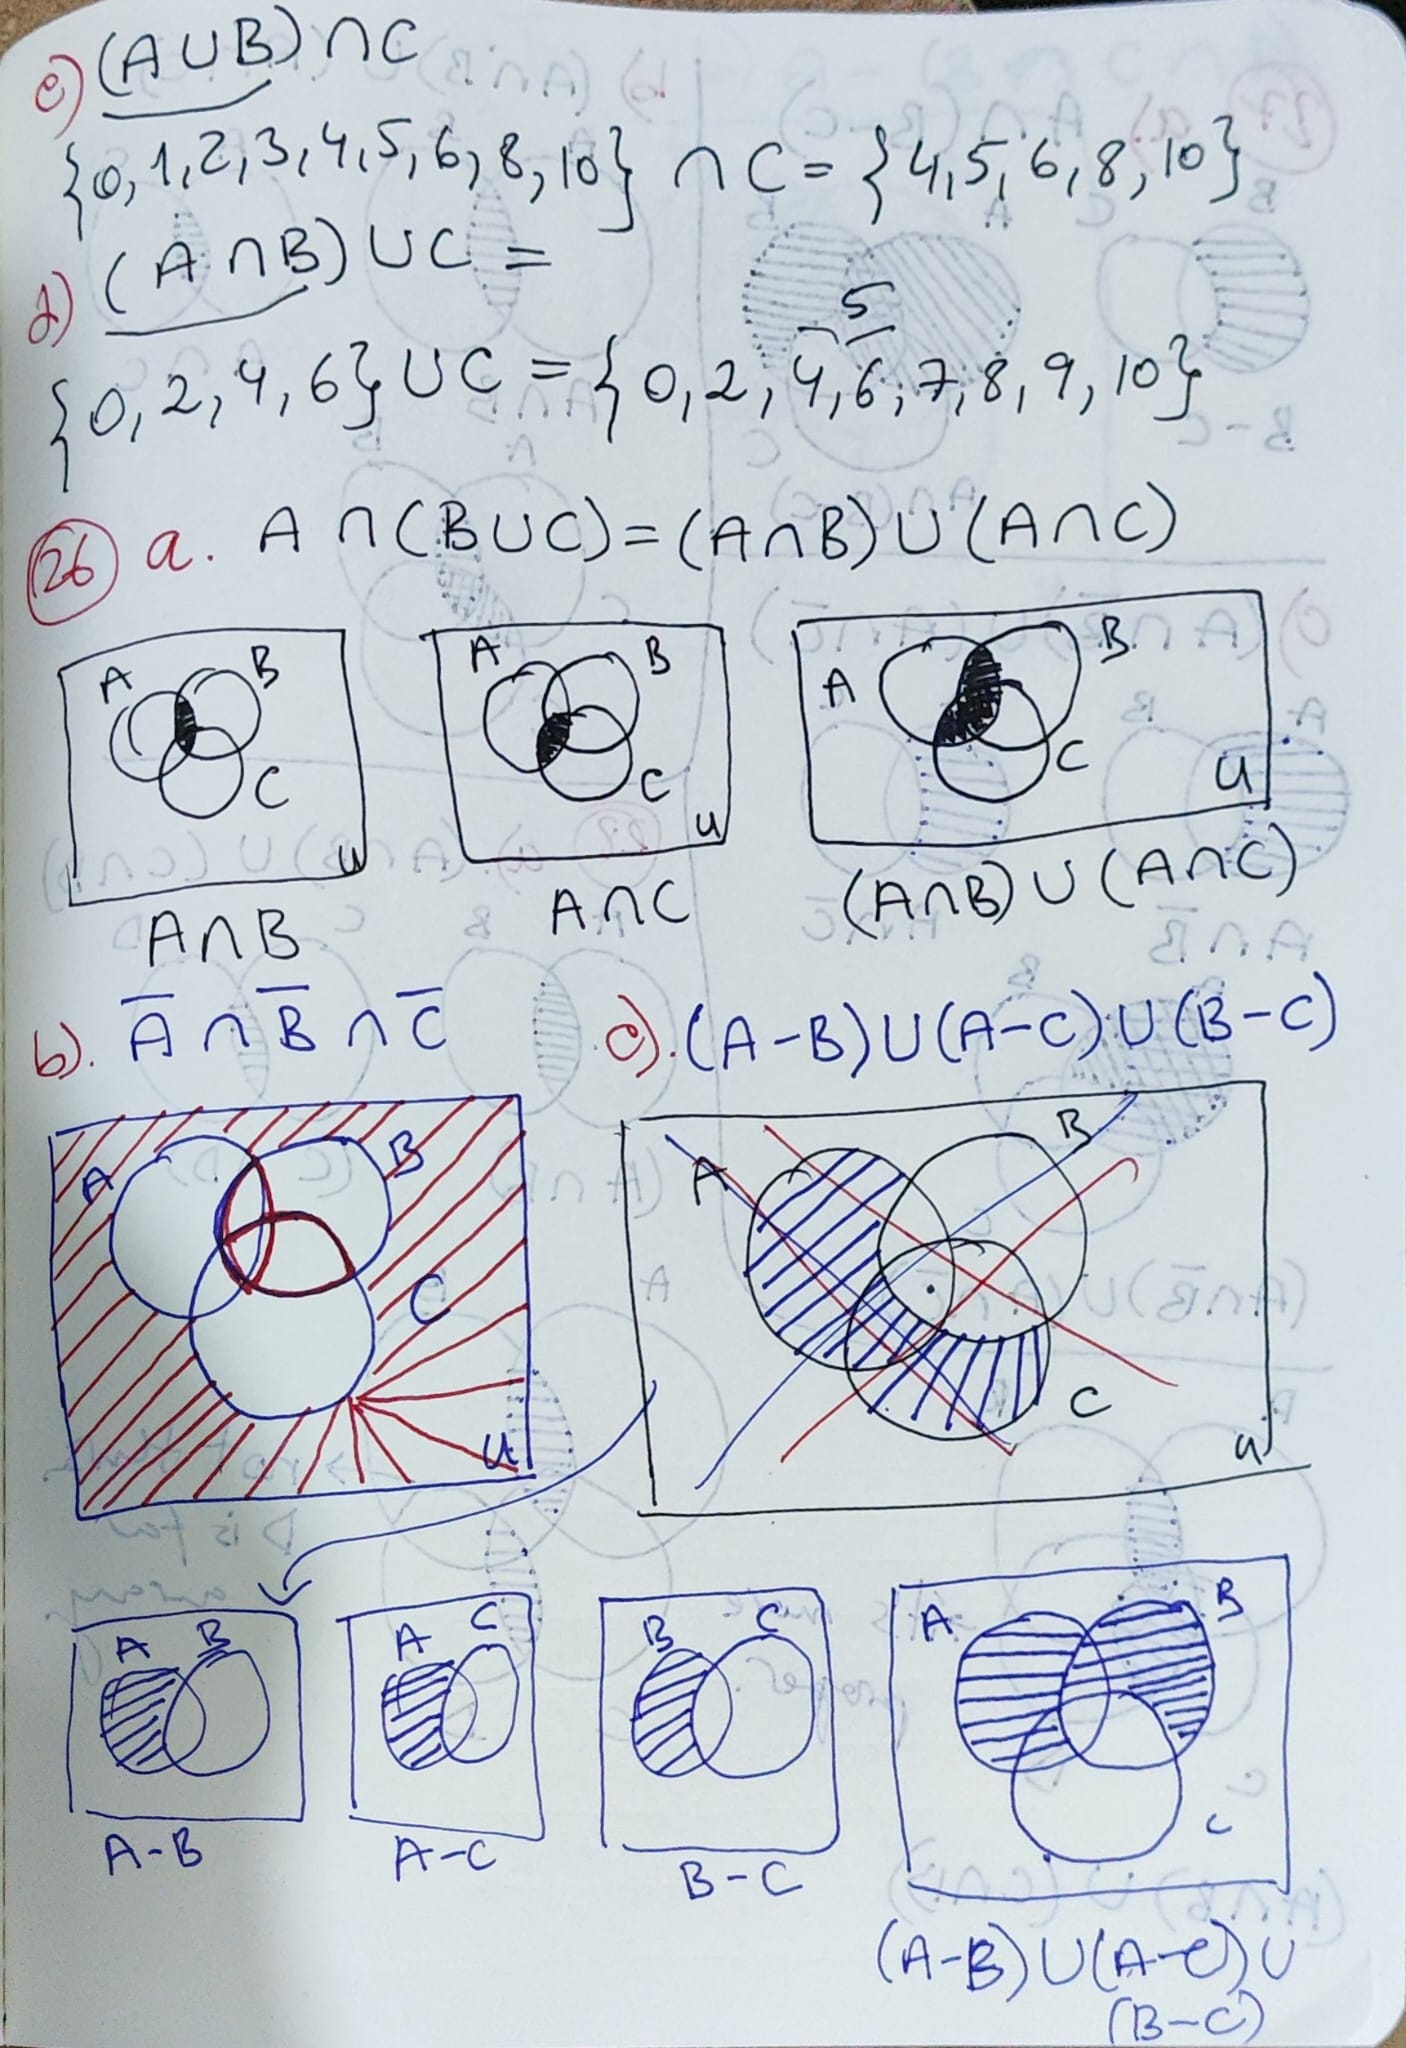 c) (A∪B)∩C
{0,1,2,3,4,5,6,8,10} ∩ C = {4,5,6,8,10}
d) (A∩B)∪C =
5
{0,2,4,6}∪C = {0,2,4,6,7,8,9,10}
26 a. A∩(B∪C)=(A∩B)∪(A∩C)
A B C U
A B C U
A B C U
A∩B
A∩C
(A∩B)∪(A∩C)
b). A̅ ∩ B̅ ∩ C̅
c). (A-B)∪(A-C)∪(B-C)
A B C U
A B C U
A B
A C
B C
A B C
A-B
A-C
B-C
(A-B)∪(A-C)∪
(B-C)